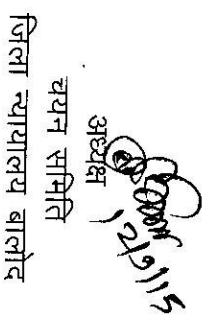 अध्यक्ष
चयन समिति
जिला न्यायालय बालोद